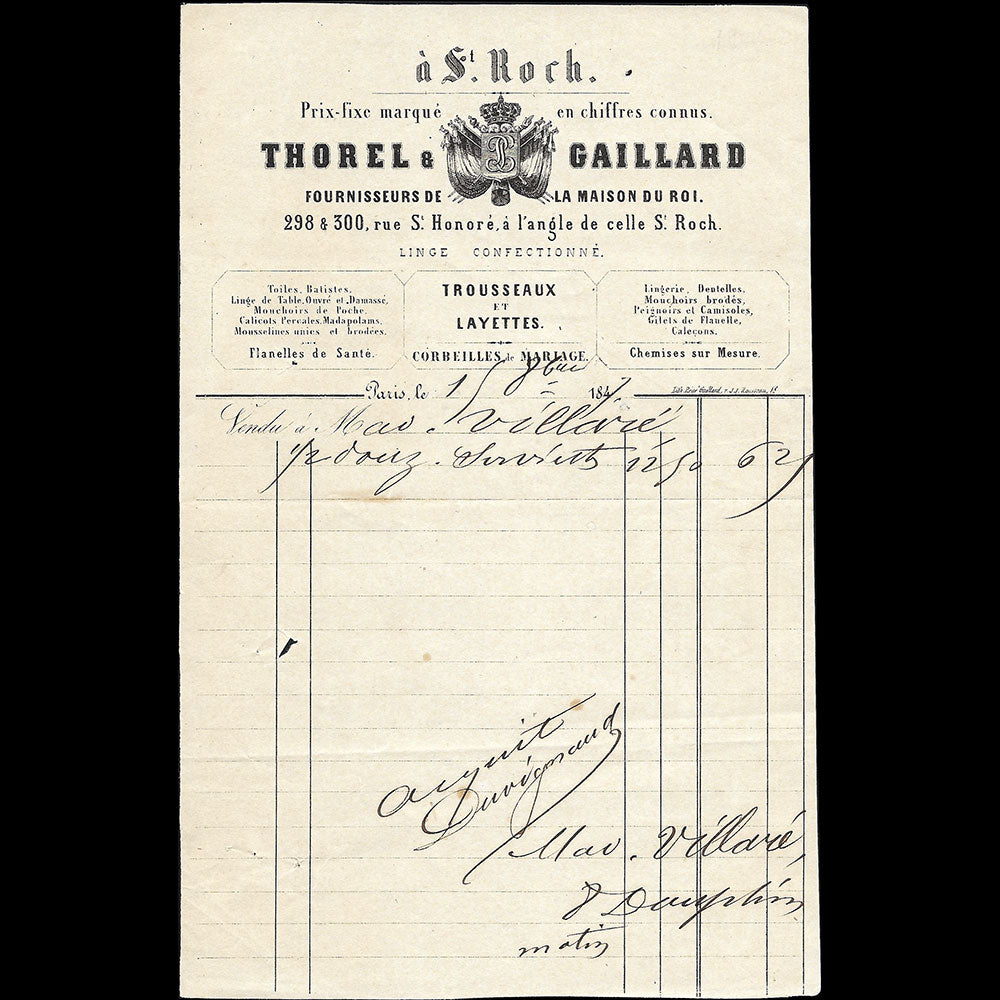 à St. Roch.
Prix-fixe marqué en chiffres connus.
THOREL & GAILLARD
FOURNISSEURS DE LA MAISON DU ROI.
298 & 300, rue St. Honoré, à l'angle de celle St. Roch.
LINGE CONFECTIONNÉ.
Toiles, Batistes,
Linge de Table, Ouvré et Damassé,
Mouchoirs de Poche,
Calicots Percales, Madapolams,
Mousselines unies et brodées.
Flanelles de Santé.
TROUSSEAUX
ET
LAYETTES.
CORBEILLES de MARIAGE.
Lingerie, Dentelles,
Mouchoirs brodés,
Peignoirs et Camisoles,
Gilets de Flanelle,
Caleçons.
Chemises sur Mesure.
Paris, le 15 8bre 1847
Vendu à Mad. Villaré
1/2 douz. Serviett 12 50 6 25
acquit
Duvignaud
Mad. Villaré,
8 Dauphin
matin